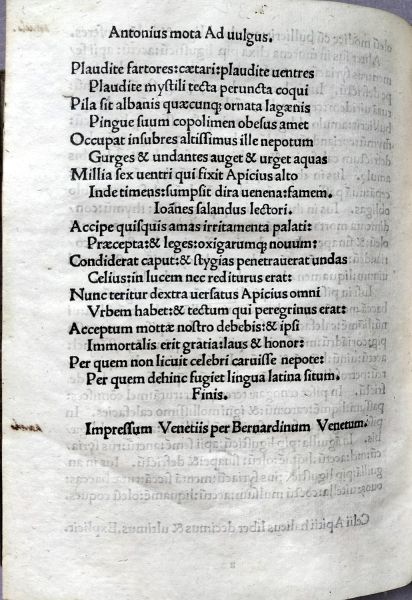 Antonius mota Ad uulgus.
Plaudite fartores:cætari:plaudite uentres
Plaudite myſtili tecta peruncta coqui
Pila ſit albanis quæcunq; ornata lagænis
Pingue ſuum copolimen obeſus amet
Occupat inſubres altiſſimus ille nepotum
Gurges & undantes auget & urget aquas
Millia ſex uentri qui fixit Apicius alto
Inde timens:ſumpſit dira uenena:famem.
Ioānes ſalandus lectori.
Accipe quiſquis amas irritamenta palati:
Præcepta:& leges:oxigarumq; nouum:
Condiderat caput:& ſtygias penetrauerat undas
Celius:in lucem nec rediturus erat:
Nunc teritur dextra uerſatus Apicius omni
Vrbem habet:& tectum qui peregrinus erat:
Acceptum mottæ noſtro debebis:& ipſi
Immortalis erit gratia:laus & honor:
Per quem non licuit celebri caruiſſe nepote:
Per quem dehinc fugiet lingua latina ſitum.
Finis.
Impreſſum Venetiis per Bernardinum Venetum.